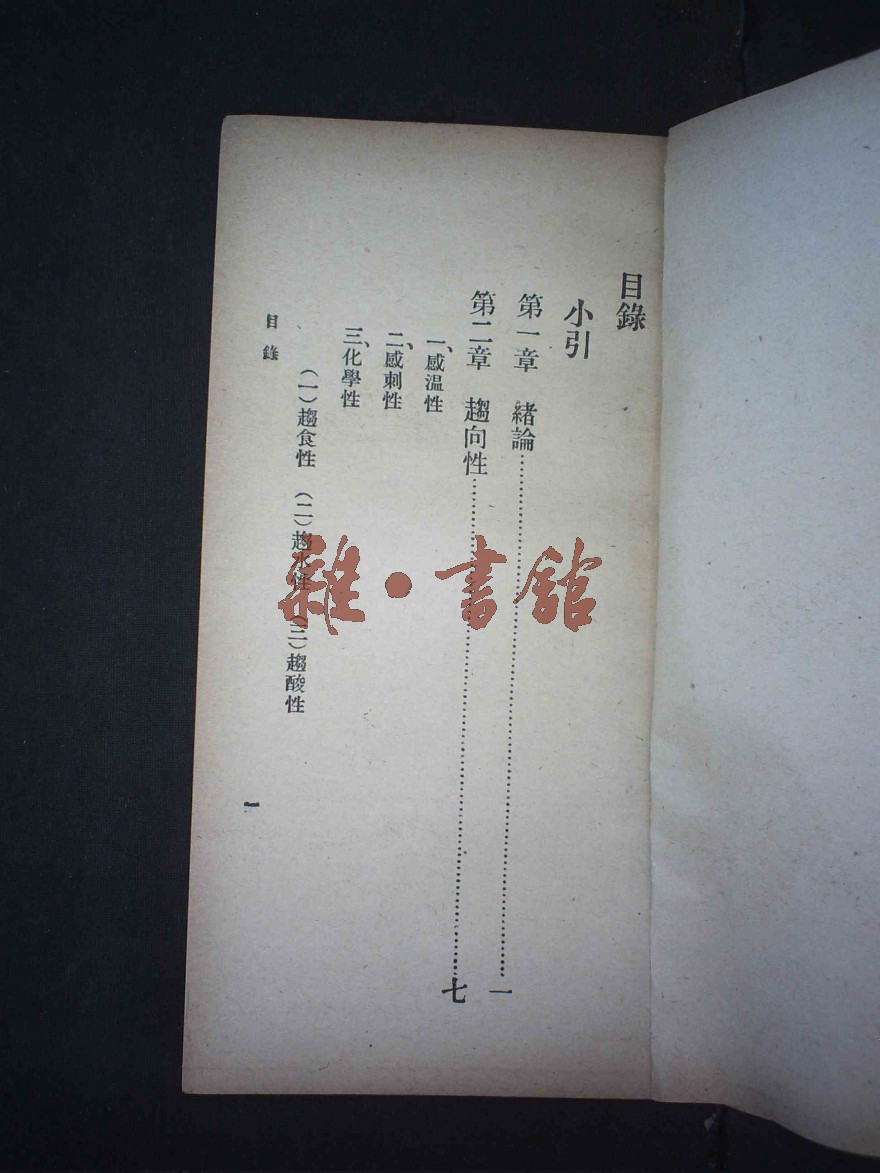 目錄
小引
第一章　緒論……一
第二章　趨向性……七
一、感溫性
二、感刺性
三、化學性
（一）趨食性　（二）趨水性　（三）趨酸性
目錄
一
雜·書館